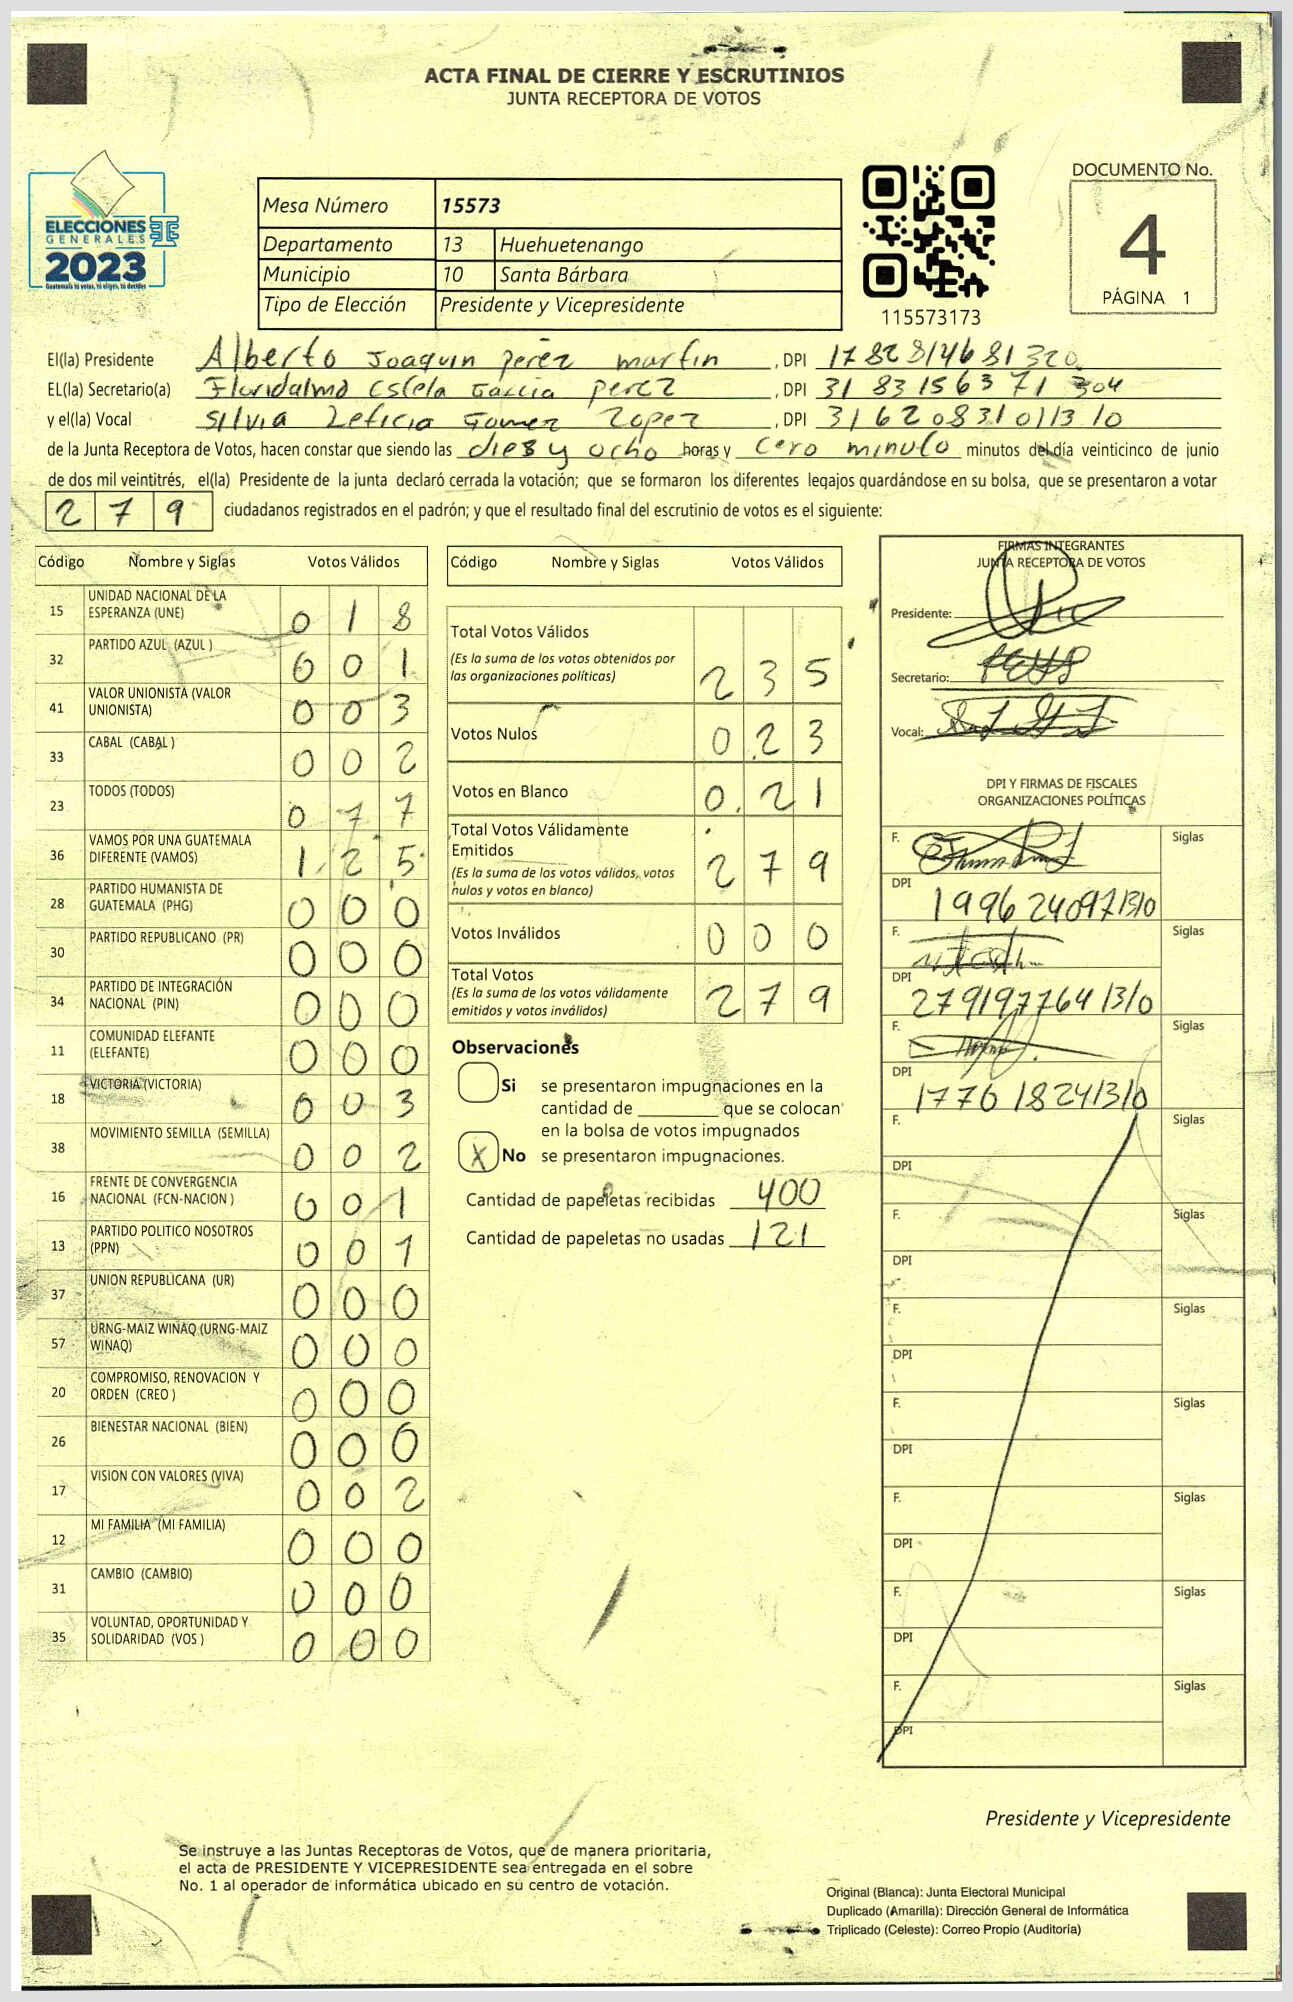 ACTA FINAL DE CIERRE Y ESCRUTINIOS
JUNTA RECEPTORA DE VOTOS
ELECCIONES
GENERALES
2023
Guatemala tú votas, tú eliges, tú decides
Mesa Número 15573
Departamento 13 Huehuetenango
Municipio 10 Santa Bárbara
Tipo de Elección Presidente y Vicepresidente
115573173
DOCUMENTO No.
4
PÁGINA 1
El(la) Presidente Alberto Joaquin perez martin , DPI 1782814681320
EL(la) Secretario(a) Floridalma Estela Garcia perez , DPI 3183156371304
y el(la) Vocal Silvia Leticia Gomez Lopez , DPI 3162083101310
de la Junta Receptora de Votos, hacen constar que siendo las dies y ocho horas y cero minuto minutos del día veinticinco de junio
de dos mil veintitrés, el(la) Presidente de la junta declaró cerrada la votación; que se formaron los diferentes legajos quardándose en su bolsa, que se presentaron a votar
279 ciudadanos registrados en el padrón; y que el resultado final del escrutinio de votos es el siguiente:
Código Nombre y Siglas Votos Válidos
15 UNIDAD NACIONAL DE LA ESPERANZA (UNE) 018
32 PARTIDO AZUL (AZUL ) 001
41 VALOR UNIONISTA (VALOR UNIONISTA) 003
33 CABAL (CABAL ) 002
23 TODOS (TODOS) 077
36 VAMOS POR UNA GUATEMALA DIFERENTE (VAMOS) 125
28 PARTIDO HUMANISTA DE GUATEMALA (PHG) 000
30 PARTIDO REPUBLICANO (PR) 000
34 PARTIDO DE INTEGRACIÓN NACIONAL (PIN) 000
11 COMUNIDAD ELEFANTE (ELEFANTE) 000
18 VICTORIA (VICTORIA) 003
38 MOVIMIENTO SEMILLA (SEMILLA) 002
16 FRENTE DE CONVERGENCIA NACIONAL (FCN-NACION ) 001
13 PARTIDO POLITICO NOSOTROS (PPN) 001
37 UNION REPUBLICANA (UR) 000
57 URNG-MAIZ WINAQ (URNG-MAIZ WINAQ) 000
20 COMPROMISO, RENOVACION Y ORDEN (CREO ) 000
26 BIENESTAR NACIONAL (BIEN) 000
17 VISION CON VALORES (VIVA) 002
12 MI FAMILIA (MI FAMILIA) 000
31 CAMBIO (CAMBIO) 000
35 VOLUNTAD, OPORTUNIDAD Y SOLIDARIDAD (VOS ) 000
Código Nombre y Siglas Votos Válidos
Total Votos Válidos 235
(Es la suma de los votos obtenidos por
las organizaciones políticas)
Votos Nulos 023
Votos en Blanco 021
Total Votos Válidamente
Emitidos 279
(Es la suma de los votos válidos, votos
nulos y votos en blanco)
Votos Inválidos 000
Total Votos 279
(Es la suma de los votos válidamente
emitidos y votos inválidos)
Observaciones
Si se presentaron impugnaciones en la
cantidad de ________ que se colocan
en la bolsa de votos impugnados
X No se presentaron impugnaciones.
Cantidad de papeletas recibidas 400
Cantidad de papeletas no usadas 121
FIRMAS INTEGRANTES
JUNTA RECEPTORA DE VOTOS
Presidente:
Secretario:
Vocal:
DPI Y FIRMAS DE FISCALES
ORGANIZACIONES POLÍTICAS
F. Siglas
DPI 1996240971310
F. Siglas
DPI 2791977641310
F. Siglas
DPI 177618241310
F. Siglas
DPI
F. Siglas
DPI
F. Siglas
DPI
F. Siglas
DPI
F. Siglas
DPI
F. Siglas
DPI
F. Siglas
DPI
Presidente y Vicepresidente
Se instruye a las Juntas Receptoras de Votos, que de manera prioritaria,
el acta de PRESIDENTE Y VICEPRESIDENTE sea entregada en el sobre
No. 1 al operador de informática ubicado en su centro de votación.
Original (Blanca): Junta Electoral Municipal
Duplicado (Amarilla): Dirección General de Informática
Triplicado (Celeste): Correo Propio (Auditoría)